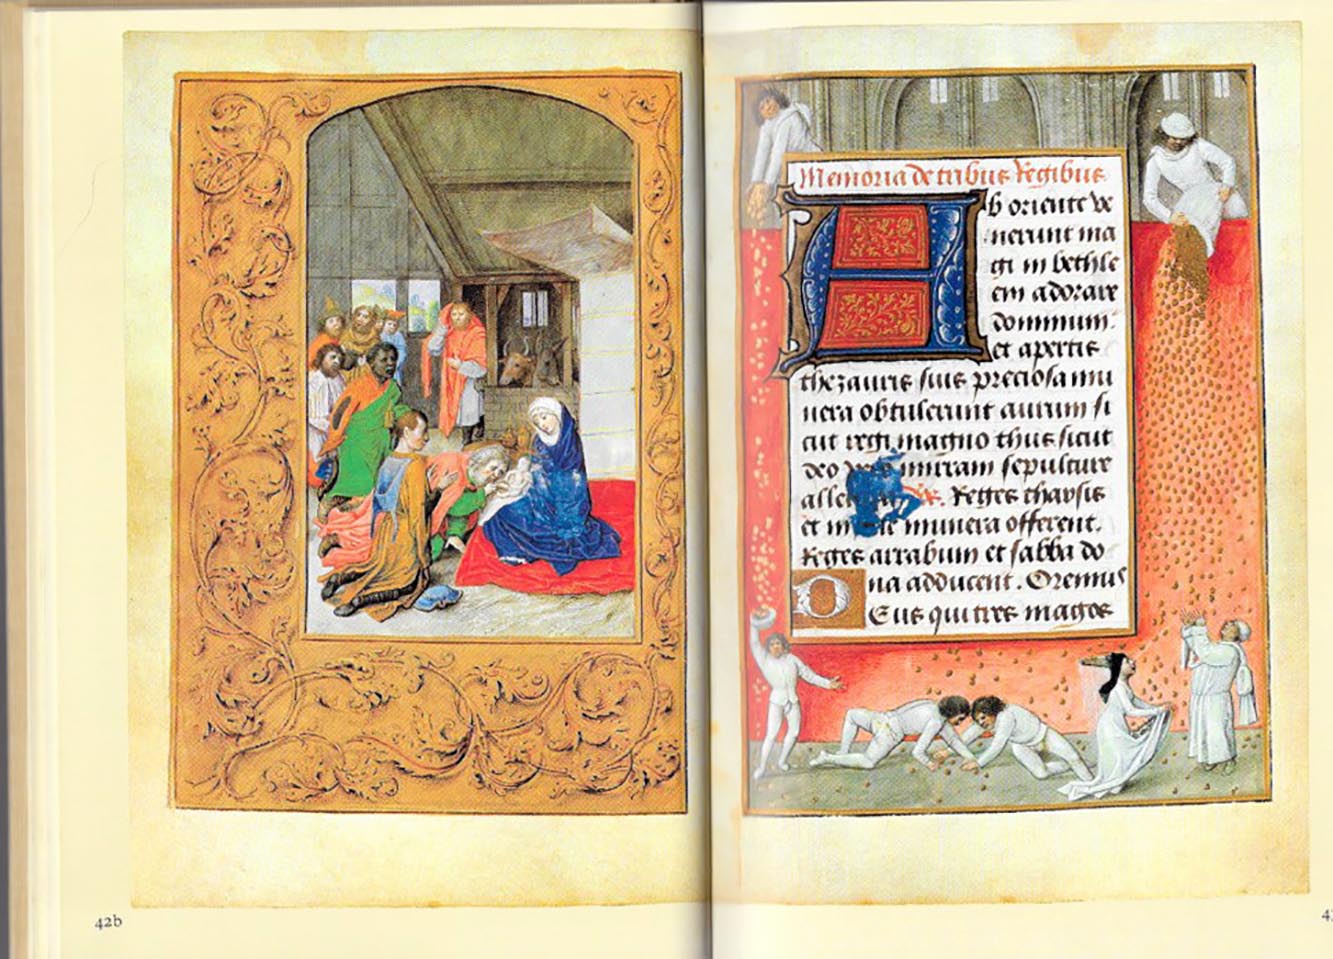 42b
Memoria de tribus Regibus
Ab oriente ve
nerunt ma
gi in bethle
em adorare
dominum.
et apertis
thezauris suis preciosa mu
nera obtulerunt aurum si
cut regi magno thus sicut
deo mirram sepulture
alle Reges tharsis
et munera offerent.
Reges arrabum et sabba do
na adducent. Oremus
Deus qui tres magos